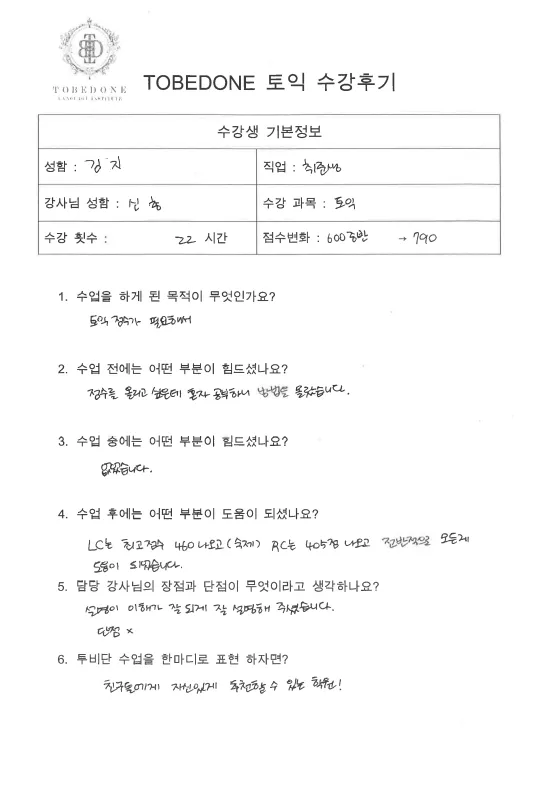 TOBEDONE
LANGUAGE INSTITUTE
TOBEDONE 토익 수강후기
수강생 기본정보
성함 : 김 지
직업 : 취준생
강사님 성함 : 신
수강 과목 : 토익
수강 횟수 : 22 시간
점수변화 : 600중반 → 790
1. 수업을 하게 된 목적이 무엇인가요?
토익 점수가 필요해서
2. 수업 전에는 어떤 부분이 힘드셨나요?
점수를 올리고 싶은데 혼자 공부하니 방법을 몰랐습니다.
3. 수업 중에는 어떤 부분이 힘드셨나요?
없었습니다.
4. 수업 후에는 어떤 부분이 도움이 되셨나요?
LC는 최고점수 460 나오고 (숙제) RC는 405점 나오고 전반적으로 모든게
도움이 되었습니다.
5. 담당 강사님의 장점과 단점이 무엇이라고 생각하나요?
설명이 이해가 잘 되게 잘 설명해 주셨습니다.
단점 x
6. 투비단 수업을 한마디로 표현 하자면?
친구들에게 자신있게 추천할 수 있는 학원!